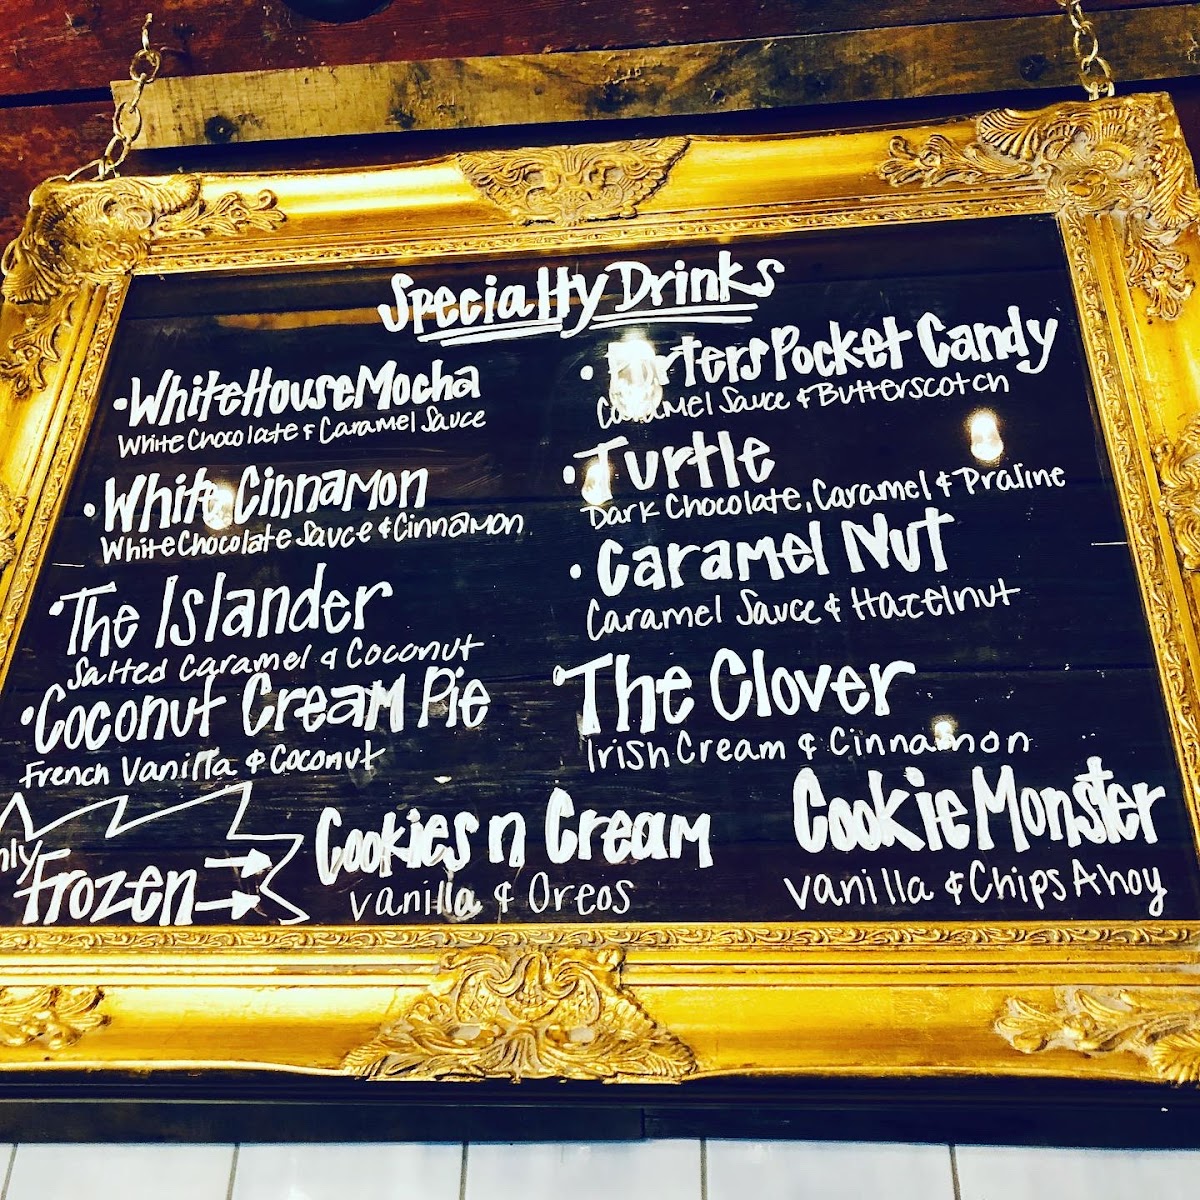 Specialty Drinks
•WhiteHouseMocha
White Chocolate & Caramel Sauce
•White Cinnamon
White Chocolate Sauce & Cinnamon
•The Islander
Salted Caramel & Coconut
•Coconut Cream Pie
French Vanilla & Coconut
•Porters Pocket Candy
Caramel Sauce & Butterscotch
•Turtle
Dark Chocolate, Caramel & Praline
•Caramel Nut
Caramel Sauce & Hazelnut
•The Clover
Irish Cream & Cinnamon
Frozen
Cookies n Cream
Vanilla & Oreos
Cookie Monster
Vanilla & Chips Ahoy